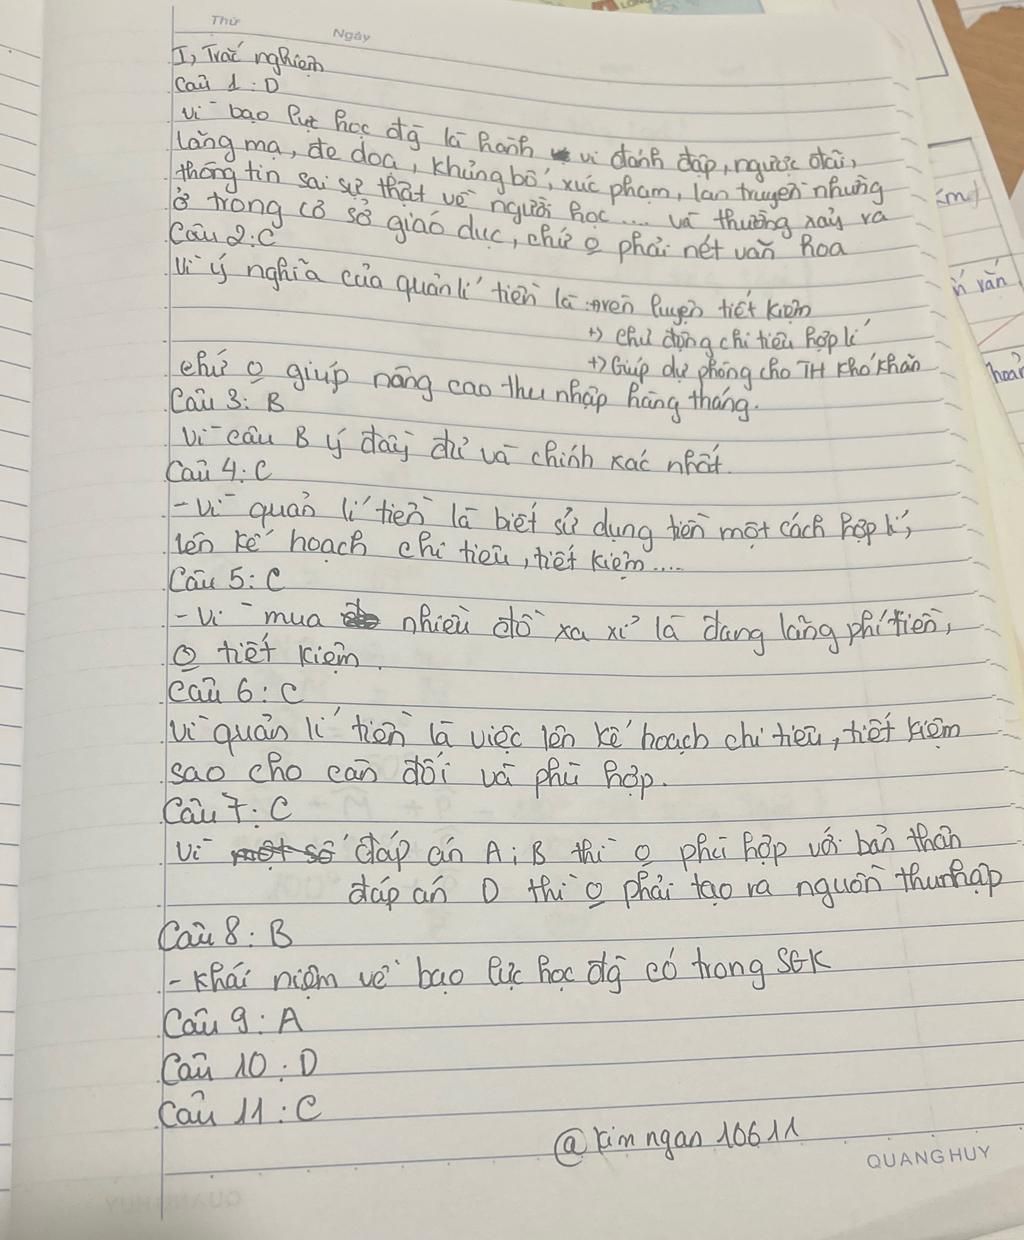 Thứ
Ngày
I, Trắc nghiệm
Câu 1: D
Vì bạo lực học đg là hành vi đánh đập, ngược đãi,
lăng mạ, đe doạ, khủng bố, xúc phạm, lan truyền những
thông tin sai sự thật về người học .... và thường xảy ra
ở trong cơ sở giáo dục, chứ o phải nét văn hoá
Câu 2: C
Vì ý nghĩa của quản lí tiền là: rèn luyện tiết kiệm
+) chủ động chi tiêu hợp lí
+) Giúp dự phòng cho TH khó khăn
chứ o giúp nâng cao thu nhập hàng tháng.
Câu 3: B
Vì câu B ý đầy đủ và chính xác nhất.
Câu 4: C
- Vì quản lí tiền là biết sử dụng tiền một cách hợp lí,
lên kế hoạch chi tiêu, tiết kiệm....
Câu 5: C
- Vì mua nhiều đồ xa xỉ là đang lãng phí tiền,
o tiết kiệm.
Câu 6: C
Vì quản lí tiền là việc lên kế hoạch chi tiêu, tiết kiệm
sao cho cân đối và phù hợp.
Câu 7: C
Vì một số đáp án A; B thì o phù hợp với bản thân
đáp án D thì o phải tạo ra nguồn thu nhập
Câu 8: B
- Khái niệm về bạo lực học đg có trong SGK
Câu 9: A
Câu 10: D
Câu 11: C
@kimngan10611
QUANG HUY
ấn văn
hoàn